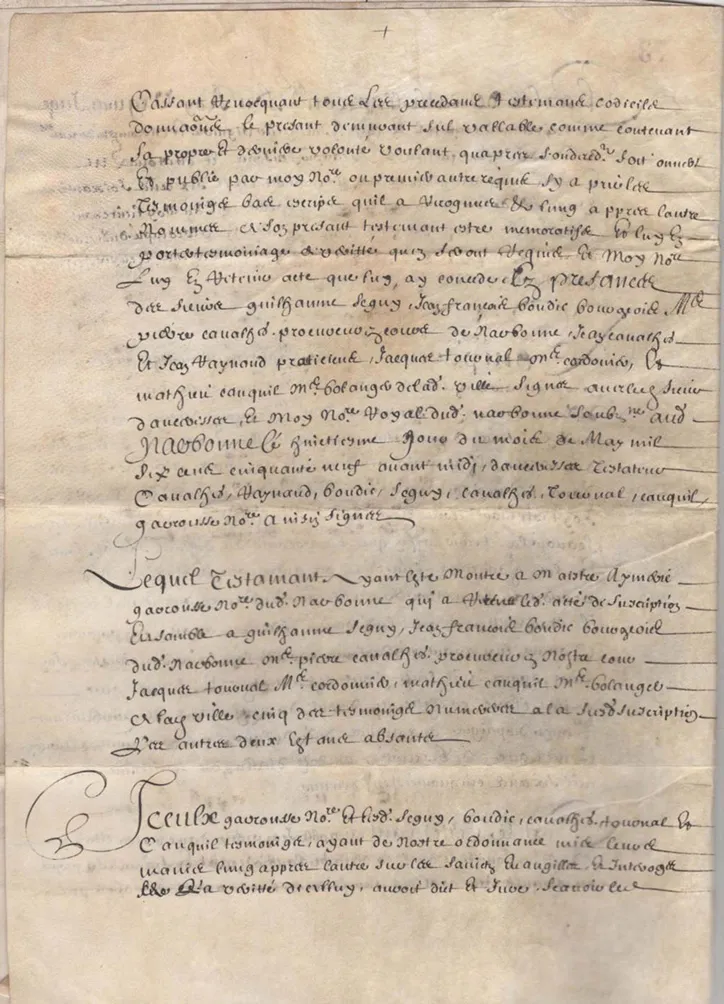 Cassant Revocquant tous les precedans Testemans codicile
donnaons, le presant demeurant sul vallable comme contenant
sa propre et derniere volonté voulant quapres sondecedz soit ouvert
Et publié par moy Nore ou premier autre requis sy a prié les
Tesmoingz bas escripz quil a Recogneus & lung appres lautre
Nommes, & son presant testemant estre memoratifz Et luy En
porter tesmoniage de veritté quen seront Requis Et Moy Nore
Luy En Retenir acte que luy ay concede En presances
des sieurs guilhaume seguy, Jean francois boudic bourgeois Me
pierre cavalhes procureur en cours de Narbonne, Jean cavalhes
Et Jean Raynaud praticiens, Jacques tournal Me cordonier, Et
mathieu cauquil Me bolanger de lad. ville signes avec led sieur
davessar, Et Moy Nore Royal dud. narbonne soubzne aud
Narbonne le huictiesme Jour du mois de May mil
six cens cinquante neuf avant midj, davessar Testateur
Cavalhes, Raynaud, boudic, seguy, cavalhes, Tournal, cauquil,
gavrousse Nore Ainsin signes
Lequel Testamant. Ayant Este Montré a Maistre Aymeric
gavrousse Nore dud. Narbonne qui a Retenu led. acte de suscription
Ensamble a guilhaume seguy, Jean francois boudic bourgeois
dud. Narbonne Me. pierre cavalhes. procureur en Nostre cour
Jacques tournal Me cordonier, mathieu cauquil Me bolanger
& lad ville cinq des tesmoingz Nummeres a la susd suscription
Les autres deux Estans absants
Iceulx gavrousse Nore Et lesd. seguy, boudic, cavalhes, tournal Et
Cauquil tesmoingz, ayant de Nostre ordonnance mis leurs
mains lung appres lautre sur les saincts Evangilles, Et Interroges
La veritté dicelluy, auroit dict et Jure, scavoir led